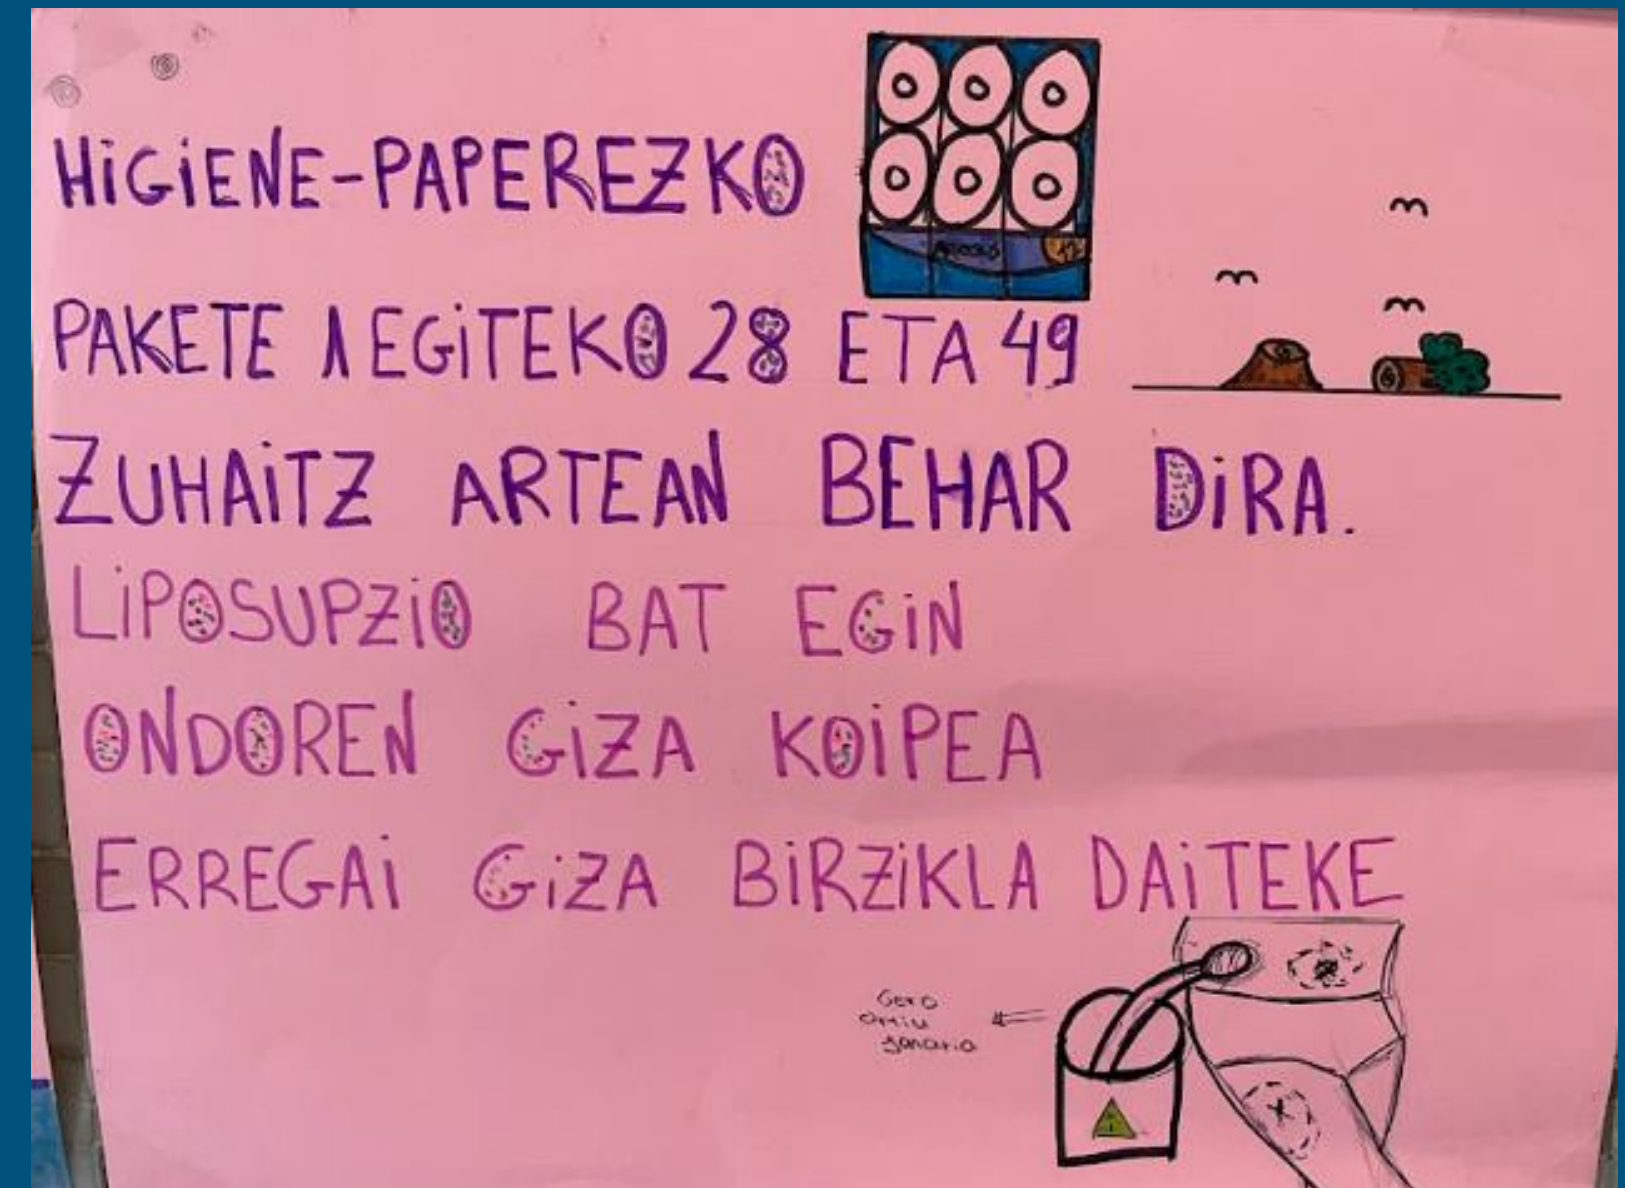 HiGiENE-PAPEREZKO
PAKETE 1 EGiTEKO 28 ETA 49
ZUHAiTZ ARTEAN BEHAR DiRA.
LiPOSUPZiO BAT EGiN
ONDOREN GiZA KOiPEA
ERREGAi GiZA BiRZiKLA DAiTEKE
Gero